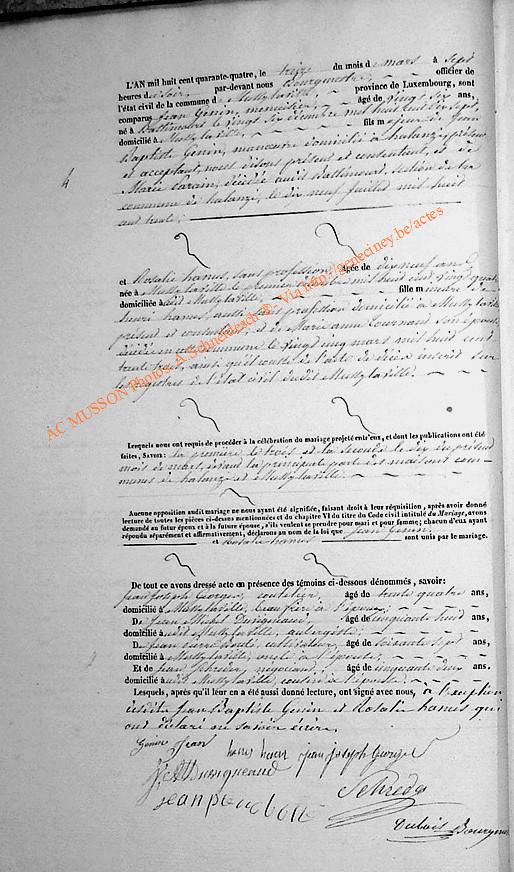 L'AN mil huit cent quarante-quatre, le treize du mois de mars à sept
heures du soir, par-devant nous Bourgmestre, officier de
l'état civil de la commune de Mussy la ville, province de Luxembourg, sont
comparus Jean Genin, menuisier, âgé de vingt six ans,
né à Battincourt le vingt six décembre mil huit cent dix sept,
domicilié à Mussy la ville, fils majeur de Jean
Baptiste Genin, manoeuvre domicilié à halanzy, présent
et acceptant, nous disons présent et consentant, et de
Marie décédée audit Battincourt, section de la
commune de halanzy, le dix neuf juillet mil huit
cent trente;
4
et Rosalie hames, sans profession, âgée de dix neuf ans,
née à Mussy la ville le premier mil huit cent vingt quatre
domiciliée audit Mussy la ville. fille mineure de
henri hames, aussi sans profession domicilié à Mussy la ville
présent et consentant et de Marie anne son épouse
décédée en cette commune le vingt cinq mars mil huit cent
trente, ainsi qu'il conste de l'acte de décès inscrit sur
les registres de l'état civil dudit Mussy la ville.
Lesquels nous ont requis de procéder à la célébration du mariage projeté entr'eux, et dont les publications ont été
faites, SAVOIR: la première le trois et la seconde le dix du présent
mois de mars, devant la principale porte des maisons com-
munes de halanzy et Mussy la ville.
Aucune opposition audit mariage ne nous ayant été signifiée, faisant droit à leur réquisition, après avoir donné
lecture de toutes les pièces ci-dessus mentionnées et du chapitre VI du titre du Code civil intitulé du Mariage, avons
demandé au futur époux et à la future épouse, s'ils veulent se prendre pour mari et pour femme; chacun d'eux ayant
répondu séparément et affirmativement, déclarons au nom de la loi que Jean Genin
et Rosalie hames sont unis par le mariage.
De tout ce avons dressé acte en présence des témoins ci-dessous dénommés, savoir:
Jean Joseph Georges, coutelier, âgé de trente quatre ans,
domicilié à Mussy la ville, beau frère à l'épouse;
De Jean Michel Duvigneaud, âgé de cinquante huit ans,
domicilié audit Mussy la ville, aubergiste;
De Jean Pierre cultivateur, âgé de soixante sept ans,
domicilié à Mussy la ville, oncle à l'épouse;
Et de Jean négociant, âgé de cinquante deux ans,
domicilié audit Mussy la ville, cousin à l'épouse.
Lesquels, après qu'il leur en a été aussi donné lecture, ont signé avec nous, à l'exception
desdits Jean Baptiste Genin et Rosalie hames qui
ont déclaré ne savoir écrire.
Genin Jean
jean joseph Georges
Duvigneaud
jean pier
Dubois Bourgmestre
AC MUSSON Photos: A.Schneidesch ©. Via http://geneciney.be/actes